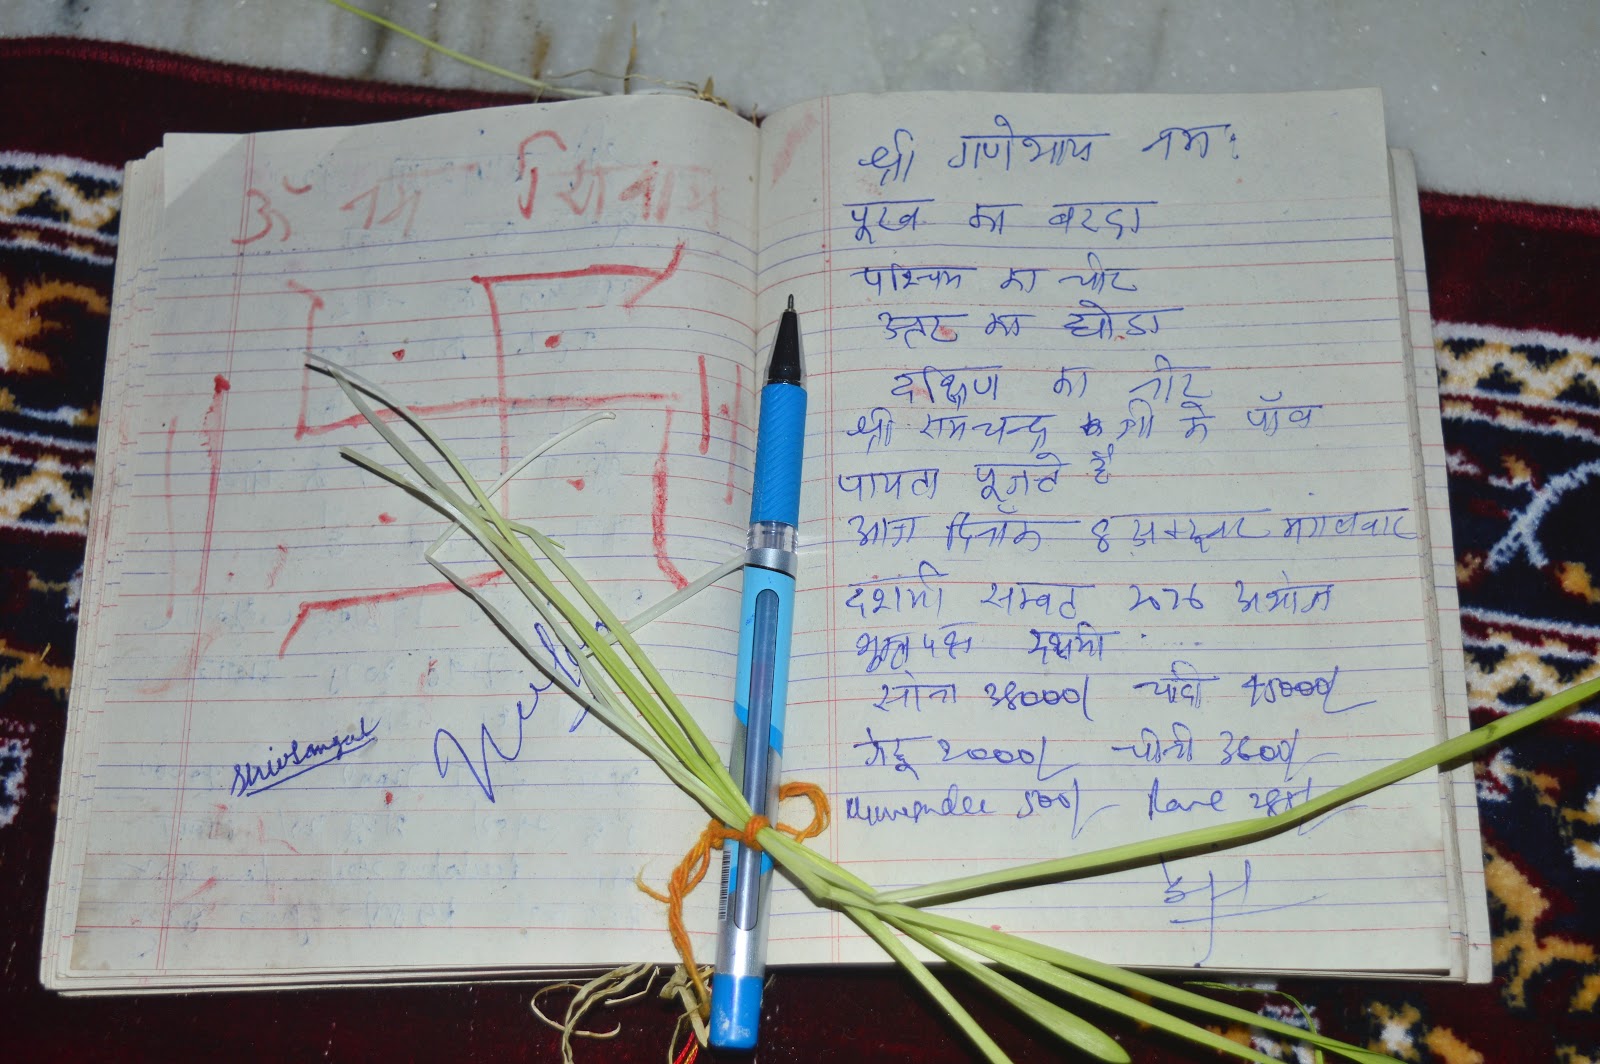 ॐ नम शिवाय
Shivsangal
श्री गणेशाय नम:
पूरब का बरदा
पश्चिम का चीर
उत्तर का घोडा
दक्षिण का नीर
श्री रामचन्द्र जी के पाँव
पायता पूजते है
आज दिनाँक 8 अक्टूबर मंगलवार
दशमी सम्वत 2076 अश्वीन
शुक्ल पक्ष दशमी
सोना 38000/- चाँदी 45000/-
गेहू 2000/- चीनी 3600/-
500/-